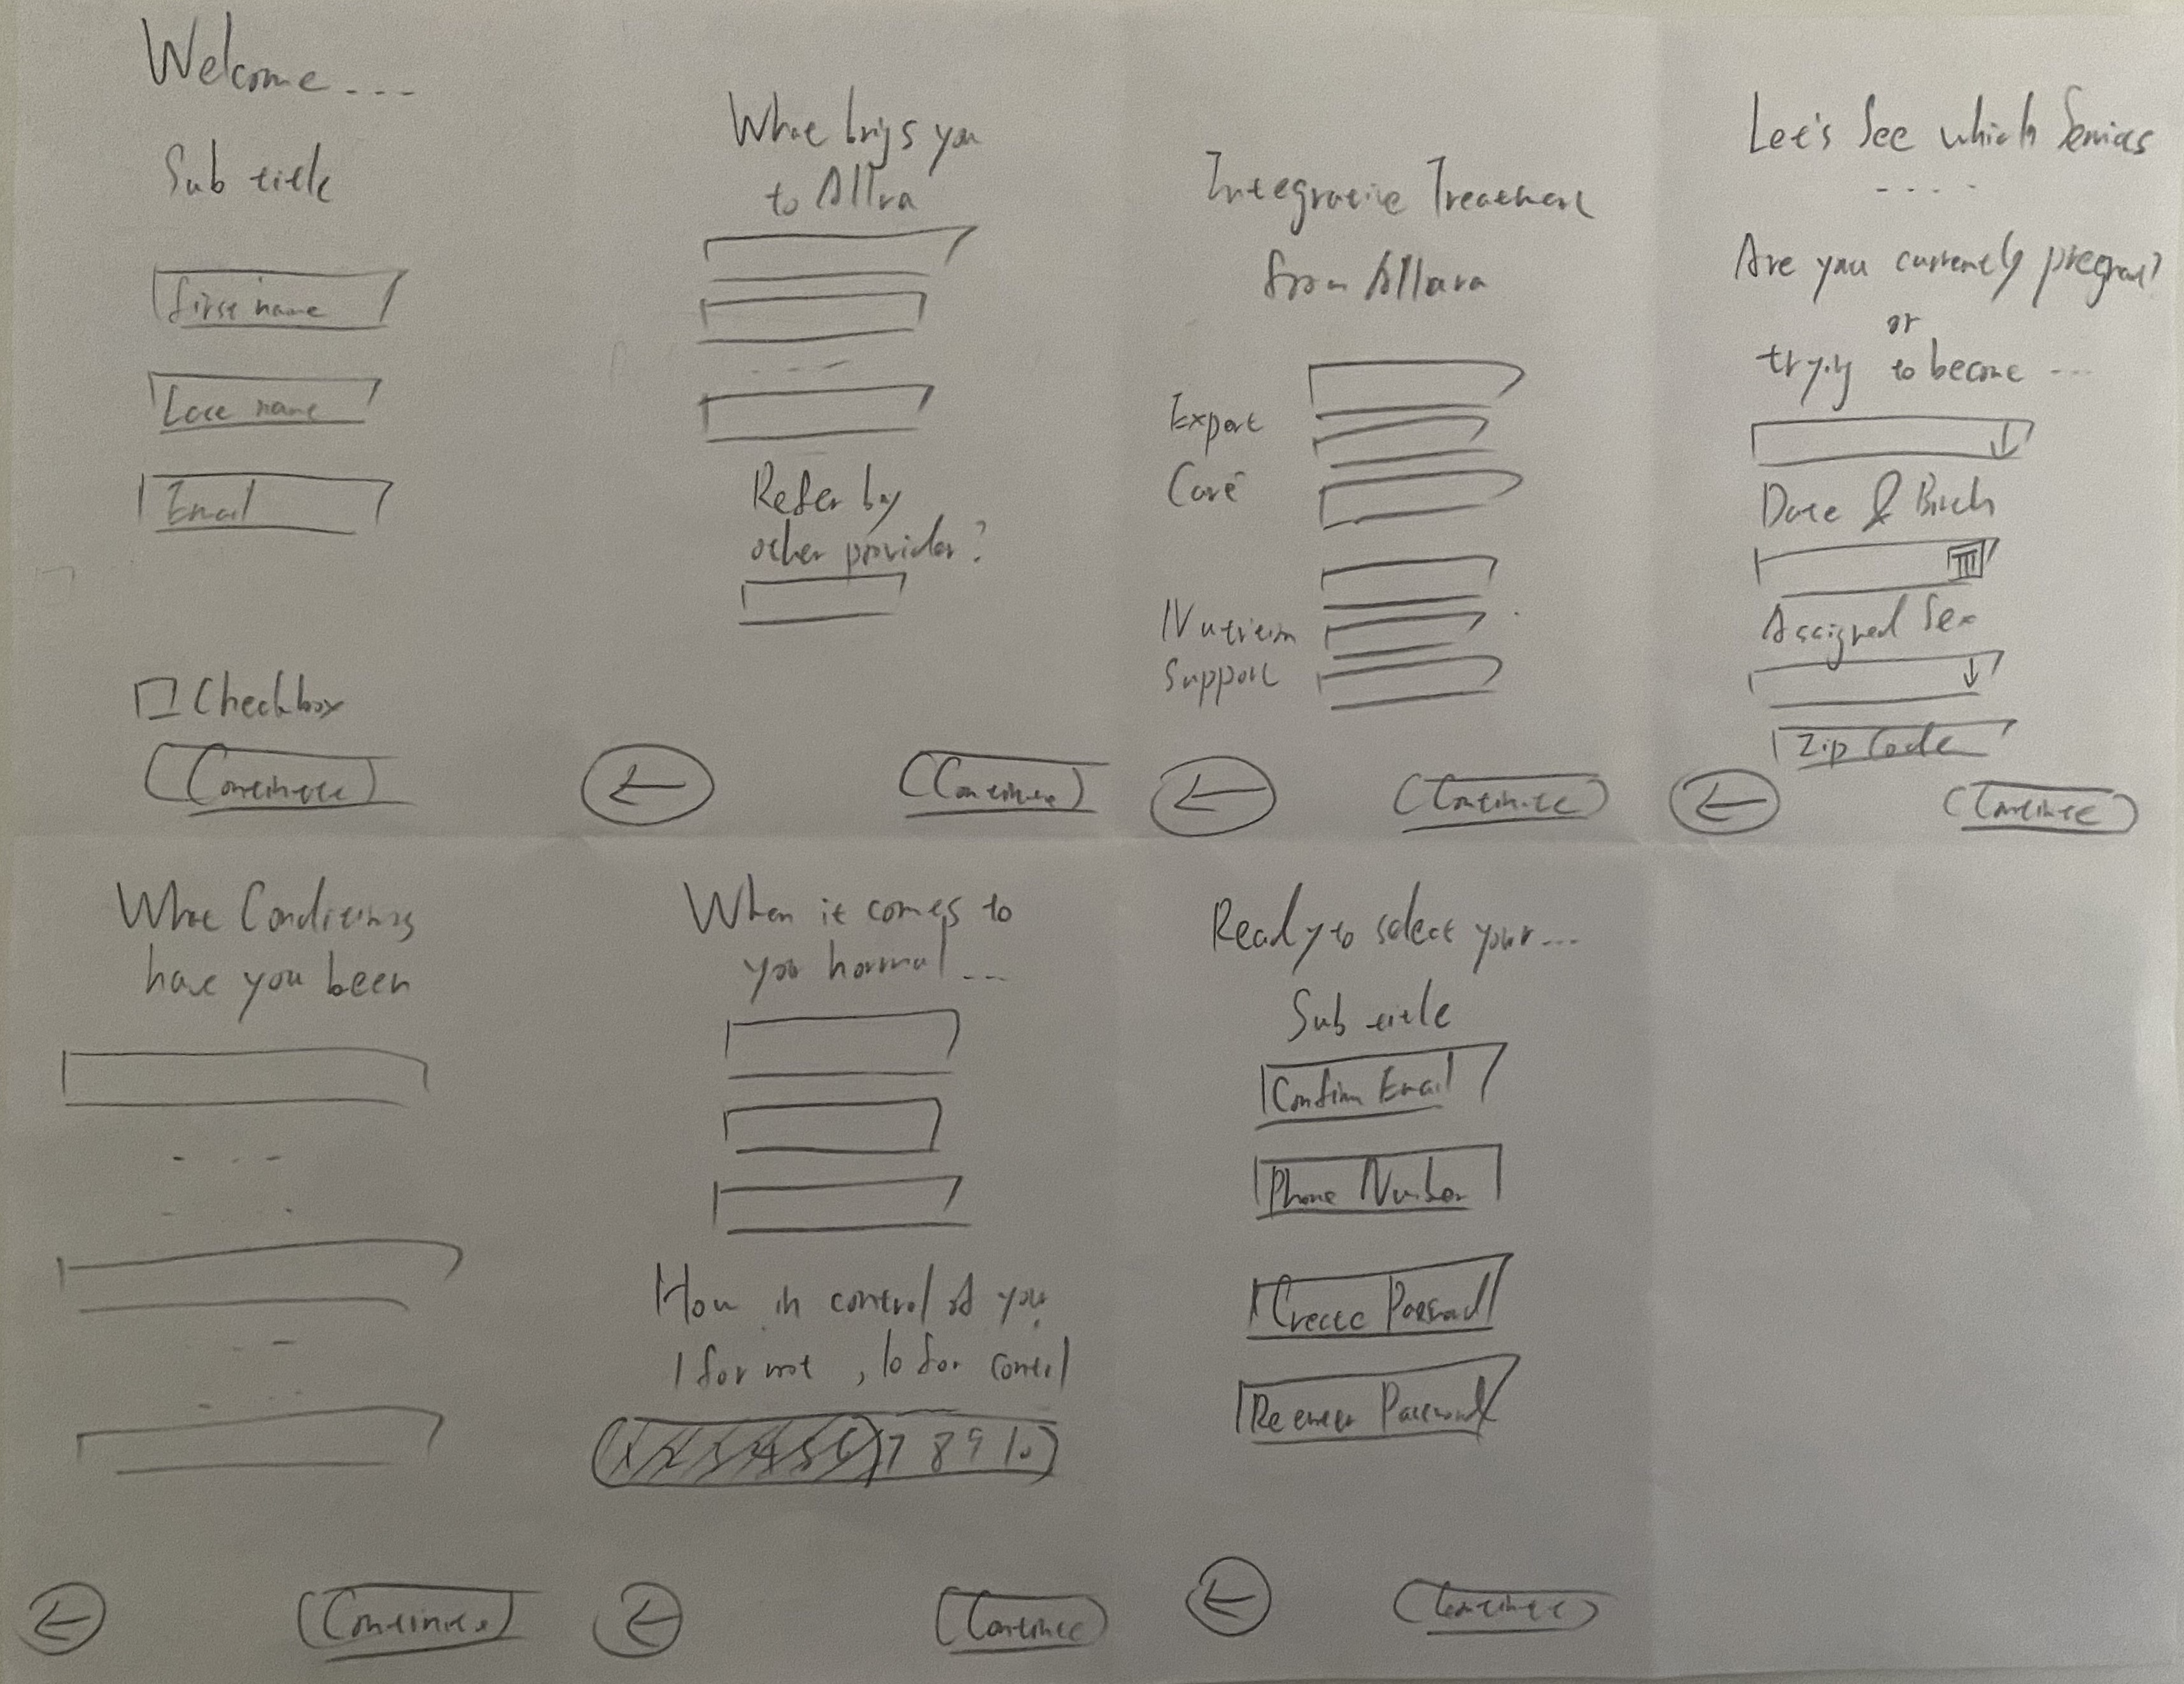 Welcome ...
Sub title
First name
Last name
Email
Checkbox
Continue
What brigs you
to Allra
Refer by
other provider?
Continue
Integrative Treatment
from Allara
Expert
Care
Nutrition
Support
Continue
Let's See which Services
....
Are you currently pregnant?
or
trying to become ...
Date & Birth
Assigned Sex
Zip Code
Continue
What Conditions
have you been
Continue
When it comes to
your hormal ...
How in control of your
1 for not , 10 for control
1 2 3 4 5 6 7 8 9 10
Continue
Ready to select your ...
Sub title
Confirm Email
Phone Number
Create Password
Re enter Password
Continue